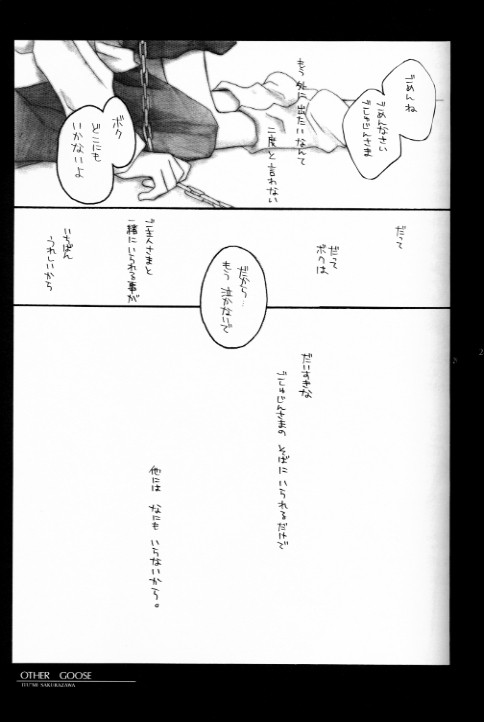 ごめんね
ごめんなさい
ごしゅじんさま
もう 外に 出たいなんて
二度 と 言わない
ボク
どこにも
いかないよ
だって
だって
ボクは
だから…
もう 泣かないで
ご主人さまと
一緒にいられる事が
いちばん
うれしいから
だいすきな
ごしゅじんさまの そばに いられるだけで
他には なにも いらないから。
OTHER GOOSE
ITUMI SAKURAZAWA